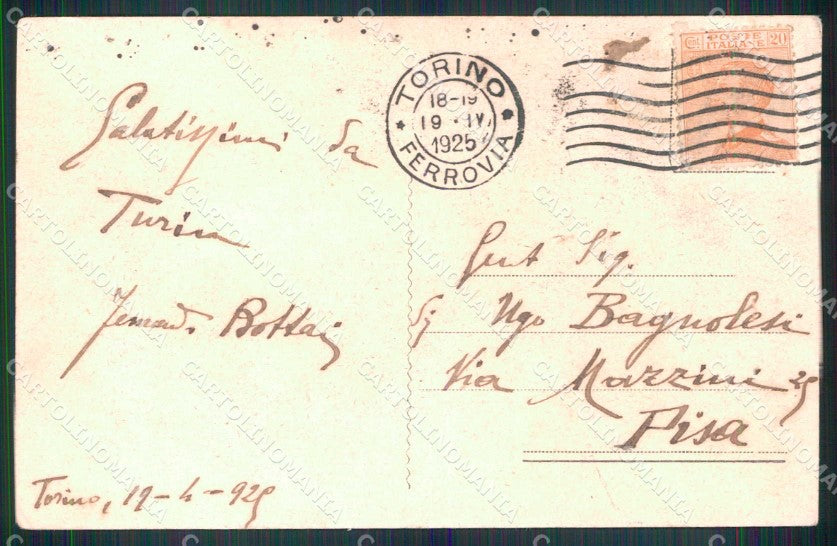 Salutissimi da
Turin
Bottai
Torino, 19-4-925
TORINO
18-19
19 · IV
1925
FERROVIA
POSTE
ITALIANE
Cent. 20
Gent Sig.
Sig Ugo Bagnolesi
Via Mazzini 25
Pisa
CARTOLINOMANIA